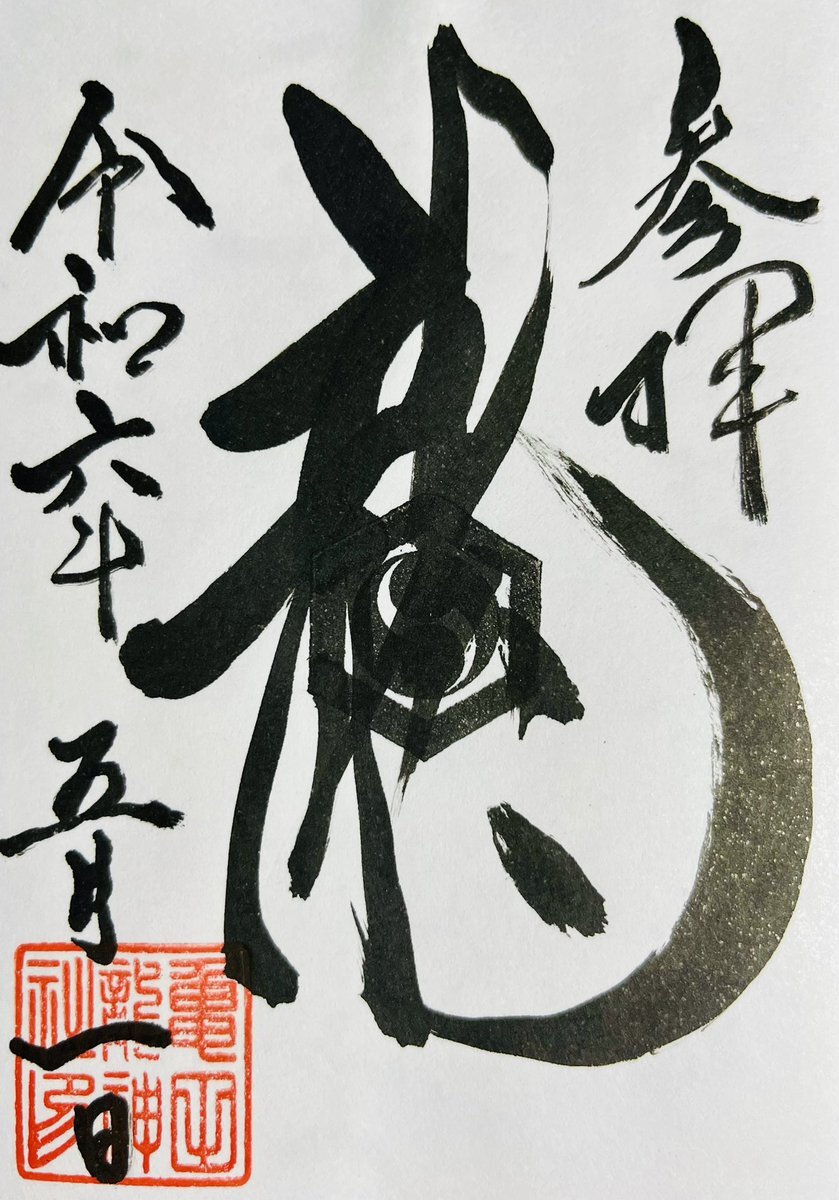 参拝
龍
令和六年五月一日
亀
龍神
社印